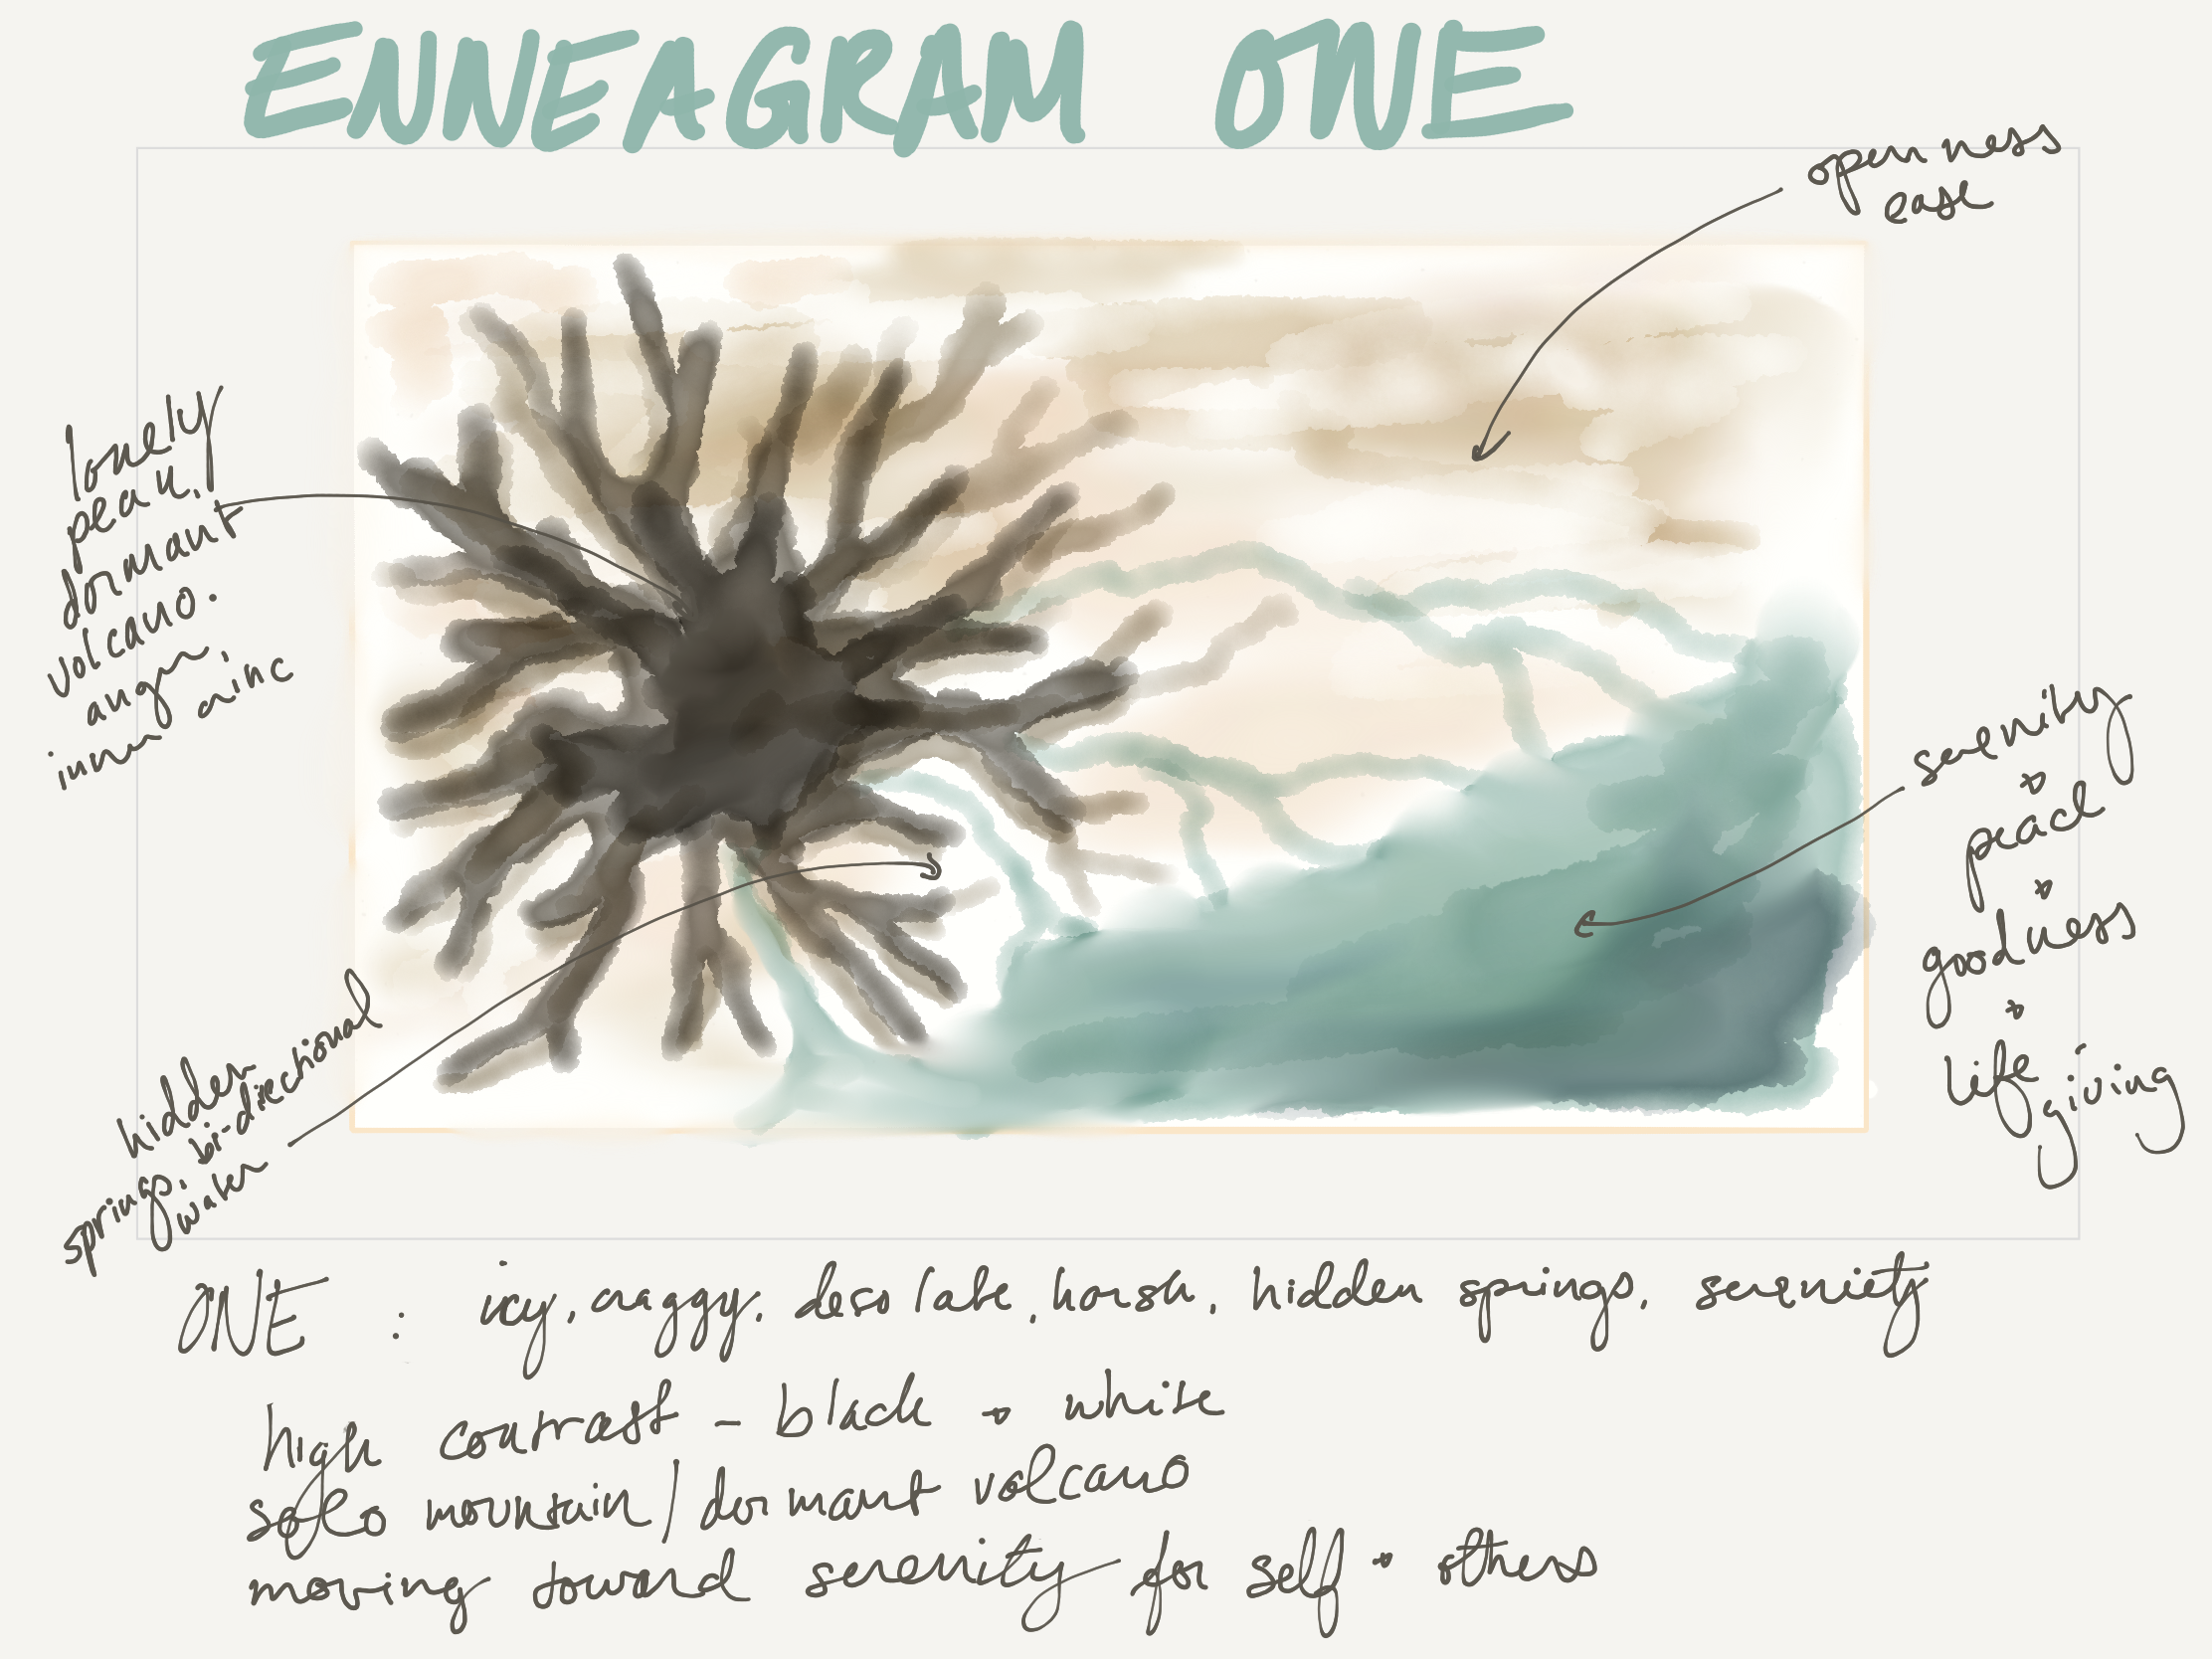 ENNEAGRAM ONE
openness
ease
lonely
peak.
dormant
volcano.
anger,
inner critic
serenity
+
peace
+
goodness
+
life
giving
hidden
springs, bi-directional
water
ONE : icy, craggy, desolate, harsh, hidden springs, sereniety
high contrast - black + white
solo mountain/dormant volcano
moving toward serenity for self + others